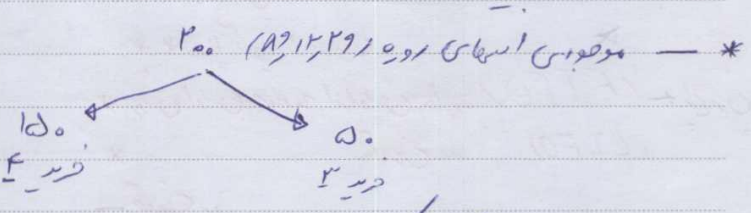 * — موجودی انتهای دوره (۸۹,۱۲,۲۹) ۲۰۰
۵۰ ۱۵۰
خرید ۳ خرید ۴